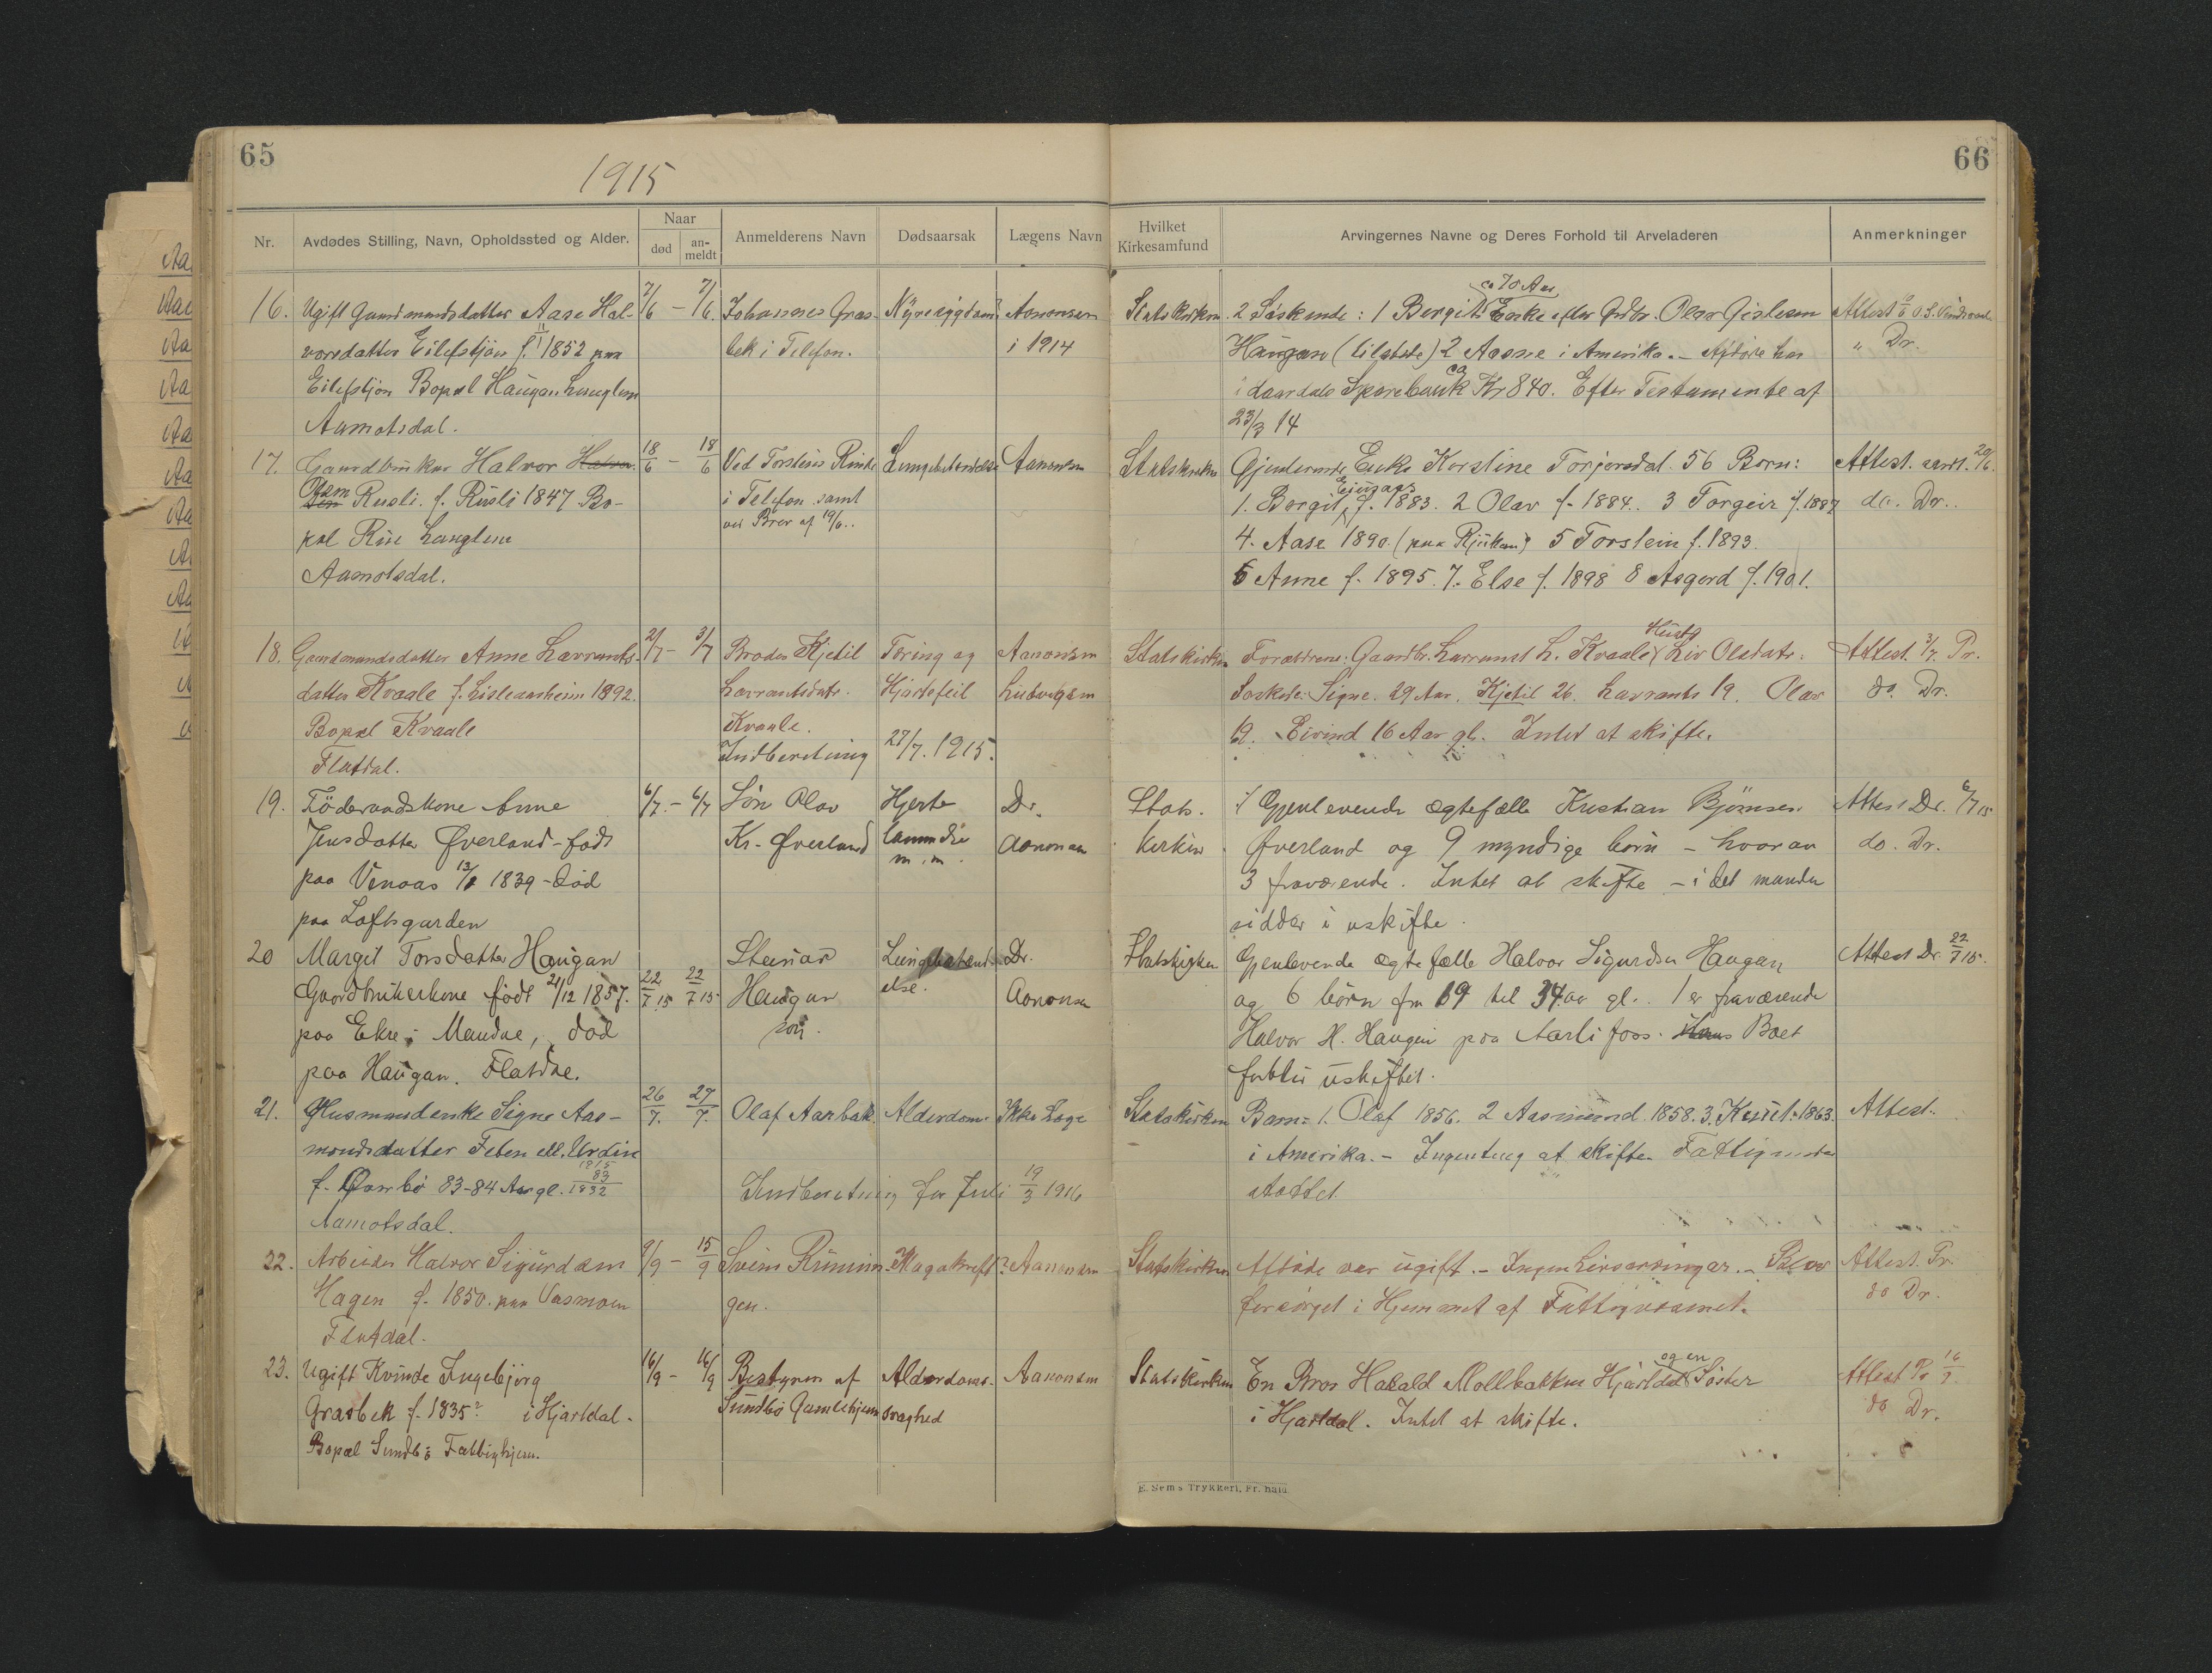 65
1915
66
Nr.
Avdødes Stilling, Navn, Opholdssted og Alder.
Naar
død
an-
meldt
Anmelderens Navn
Dødsaarsak
Lægens Navn
Hvilket
Kirkesamfund
Arvingernes Navne og Deres Forhold til Arveladeren
Anmerkninger
16. Ugift Gaardmandsdatter Aase Hal-
vorsdatter Eilefstjön f. 1852 paa
Eilefstjön Bopæl Haugan Langlim
Aamotsdal.
7/6 - 7/6.
Johannes Græs-
bek i Telefon.
Nyresygdom?
Aanonsen
i 1914
Statskirken
ca 70 Aar
2 Söskende: 1 Bergit Enke efter Gdbr. Olav Gislesen
Haugan (tilstede) 2 Aasne i Amerika. - Afdöde har
ca
i Sparebank Kr 840. Efter Testamente af
23/3 14
Attest
" Dr.
17. Gaardbruker Halvor Halvor
Rusli. f. Rusli 1847 Bo-
pæl Rui Langlim
Aamotsdal.
18/6 - 18/6
Ved Torstein
i Telefon samt
ved Brev af 19/6..
Lungebetændelse
Aanonsen
Statskirken
Gjenlevende Enke Korstine Torjersdat. 56 Born:
1. Borgit f. 1883. 2 Olav f. 1884.. 3 Torgeir f. 1887
4. Aase 1890. (paa Rjukan) 5 Torstein f. 1893.
6 Anne f. 1895. 7. Else f. 1898 8 Asgerd f. 1901.
Attest. 20/6.
do. Dr..
18. Gaardmandsdatter Anne Lavrants-
datter Kvaale f. Lisleaasheim 1892.
Bopæl Kvaale
Flatdal.
2/7 - 3/7
Broder Kjetil
Lavrantsdatr.
Kvaale.
Indberetning
Tæring og
Hjertefeil
27/7. 1915.
Aanonsen
Ludvigsen
Statskirken
Hustr
Forældrene: Gaardbr. Lavrants L. Kvaale Liv Olsdatr:
Søskede: Signe. 29 Aar. Kjetil 26. Lavrants 19. Olav
19. Eivind 16 Aar gl. Intet at skifte.
Attest. 3/7. Pr.
do. Dr.
19. Föderaadskone Anne
Jensdatter Øverland - født
paa Vinaas 13/8 1839 - død
paa Loftsgarden
6/7. - 6/7
Sön Olav
Kr. Øverland
Hjerte
lammelse
m. m.
Dr.
Aanonsen
Stats.
kirken
Gjenlevende ægtefælle Kristian Björnsen
Øverland og 9 myndige börn - hvorav
3 fraværende. Intet at skifte - i det manden
sidder i uskifte.
Attest Dr. 6/7 15
do. Dr.
20 Margit Torsdatter Haugan
Gaardbrukerkone født 21/12 1857.
paa Ekre i Mandae, død
paa Haugan. Flatdal.
22/7 15 22/7 15
Steinar
Haugan
sön.
Lungebetænd-
else.
Dr.
Aanonsen
Statskirken
Gjenlevende ægtefælle Halvor Sigurdsen Haugan
og 6 börn fra 19 til 34 aar gl.. 1 er fraværende
Halvor H. Haugen paa Aarlifoss. Boet
forblir uskiftet.
Attest Dr. 22/7 15.
21. Husmandsenke Signe Aas-
mondsdatter Feten ell. Urdin
1915
83
f. 83-84 Aar gl. 1832
Aamotsdal.
26/7. 27/7.
Olaf Aarbak.
Alderdom.
Ikke Læge
Indberetning for Juli 19/3 1916
Statskirken
Barn: 1. Olaf 1856. 2 Aasmund 1858. 3. 1863.
i Amerika. - Ingenting at skifte. Fattigunder
støttet
Attest.
22. Arbeider Halvor Sigurdsen
Hagen f. 1850. paa Vasmoen
Flatdal.
9/9 - 15/9
Svein Rinnin-
gen.
Magakreft?
Aanonsen
Statskirken
Afdöde var ugift. - Ingen Livsarvingar. - Blev
forsörget i Hjemmet af Fattigvesenet.
Attest. Pr.
do Dr.
23. Ugift Kvinde Ingebjörg
Grasbek f. 1835? i Hjartdal.
Bopæl Sundbö Fattighjem.
16/9 - 16/9
Bestyren af
Sundbö Gamlehjem
Alderdoms-
svaghed
Aanonsen
Statskirken
og en
En Bror Harald Mollbakken Hjartdal Söster
i Hjartdal. Intet at skifte.
Attest Pr 16/9.
do Dr.
E. Sem's Trykkeri, Fr.hald